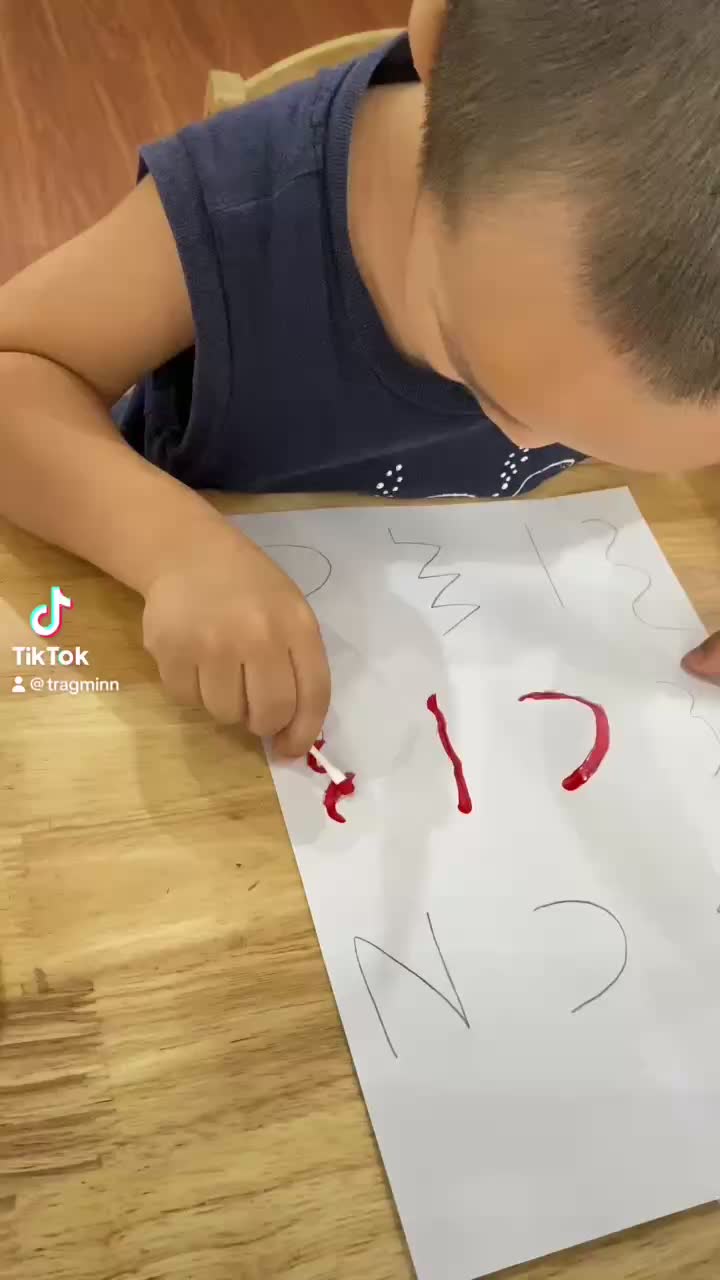 TikTok
@tragminn